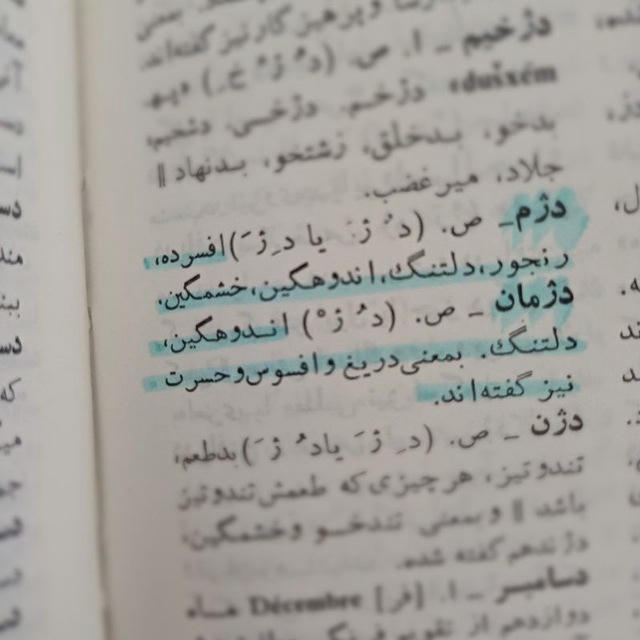 و پرهیزکار نیز گفته‌اند
دژخیم ـ ا. ص. (دُ ژْ خ.)
duižém» دژخم. دژخی دخیم
بدخو، بدخلق، زشتخو، بدنهاد ||
جلاد، میرغضب.
دژم ـ ص. (دُ ژَ یا دِ ژَ) افسرده،
رنجور، دلتنگ، اندوهگین، خشمگین.
دژمان ـ ص. (دُ ژْ) اندوهگین،
دلتنگ. بمعنی دریغ و افسوس و حسرت
نیز گفته‌اند.
دژن ـ ص. (دِ ژَ یا دُ ژَ) بدطعم،
تند و تیز، هر چیزی که طعمش تند و تیز
باشد || و بمعنی تندخو و خشمگین،
دژند هم گفته شده.
دسامبر ـ ا. [فر] Décembre ماه
دوازدهم از تقویم